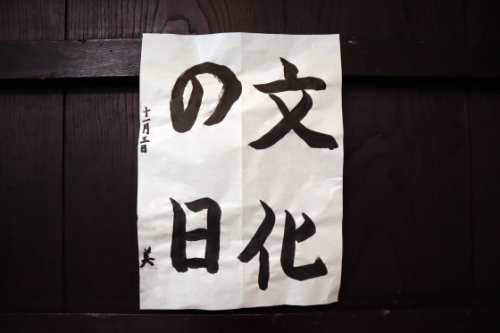 文化
の日
十一月三日
美